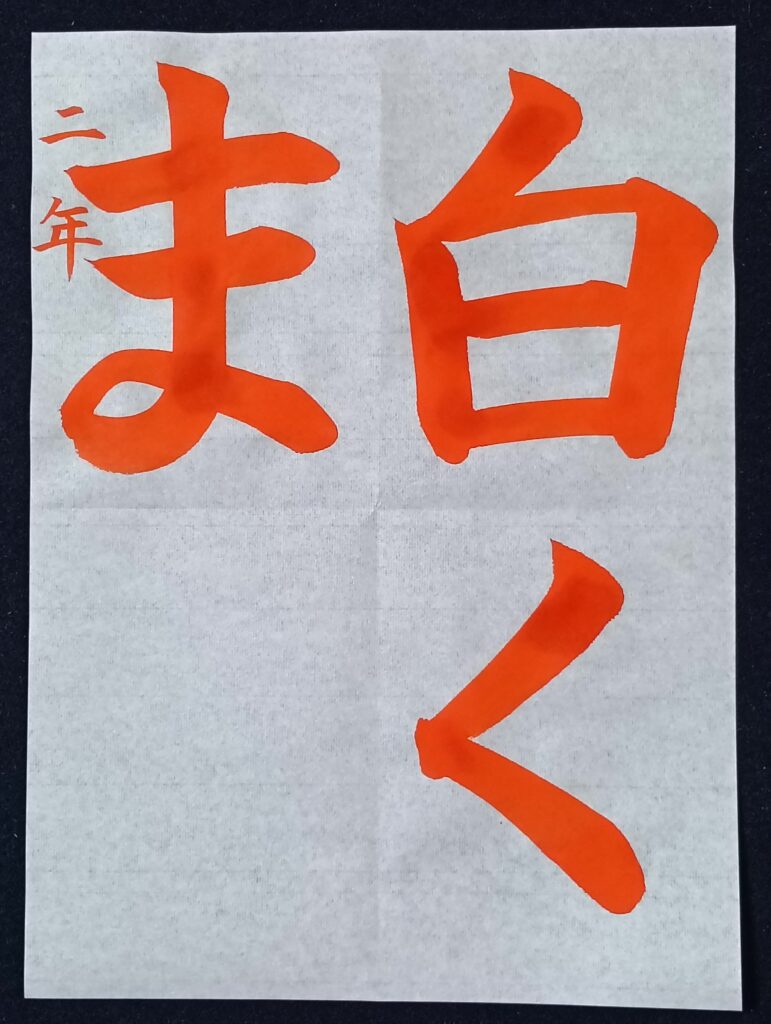 白く
ま
二年